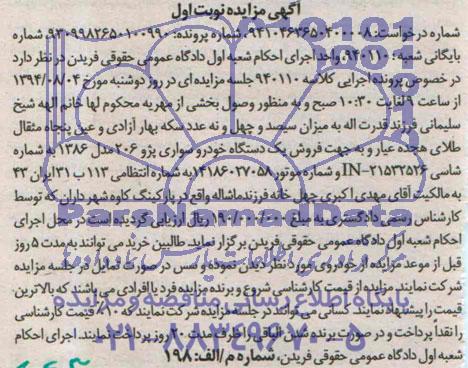 آگهی مزایده نوبت اول
شماره درخواست: ۹۴۱۰۴۶۳۶۵۰۴۰۰۰۰۸ شماره پرونده: ۹۳۰۹۹۸۳۶۵۰۱۰۰۹۹۰ شماره
بایگانی شعبه: ۹۴۰۱۱۰ واحد اجرای احکام شعبه اول دادگاه عمومی حقوقی فریدن در نظر دارد
در خصوص پرونده اجرایی کلاسه ۹۴۰۱۱۰ جلسه مزایده ای در روز دوشنبه مورخ ۱۳۹۴/۰۸/۰۴
از ساعت ۹ لغایت ۱۰:۳۰ صبح و به منظور وصول بخشی از مهریه محکوم لها خانم الهه شیخ
سلیمانی فرزند قدرت اله به میزان سیصد و چهل و نه عدد سکه بهار آزادی و عین پنجاه مثقال
طلای هجده عیار و به جهت فروش یک دستگاه خودرو سواری پژو ۲۰۶ مدل ۱۳۸۶ به شماره
شاسی IN-۲۱۵۳۲۵۲۶ و شماره موتور ۱۴۱۸۶۰۲۷۰۵۸ به شماره انتظامی ۱۱۳ ب ۳۱ ایران ۴۳
به مالکیت آقای مهدی اکبری چهل خانه فرزند ماشاله واقع در پارکینگ کاوه شهر داران که توسط
کارشناس رسمی دادگستری به مبلغ ۱۹۰/۰۰۰/۰۰۰ ریال ارزیابی گردیده است در محل اجرای
احکام شعبه اول دادگاه عمومی حقوقی فریدن برگزار نماید. طالبین خرید می توانند به مدت ۵ روز
قبل از موعد مزایده از خودروی مورد نظر دیدن نموده و سپس در صورت تمایل در جلسه مزایده
شرکت نمایند مزایده از قیمت کارشناسی شروع و برنده مزایده فرد یا افرادی می باشند که بالاترین
قیمت را پیشنهاد نمایند. کسانی می توانند در جلسه مزایده شرکت نمایند که ۱۰٪ قیمت کارشناسی
را نقداً پرداخت و در صورت برنده شدن الباقی را ظرف مدت ۳۰ روز پرداخت نمایند. اجرای احکام
شعبه اول دادگاه عمومی حقوقی فریدن، شماره م/الف: ۱۹۸
ParsNamadData
پایگاه اطلاع رسانی مناقصه و مزایده
۰۲۱-۸۸۳۴۹۶۷۰-۵